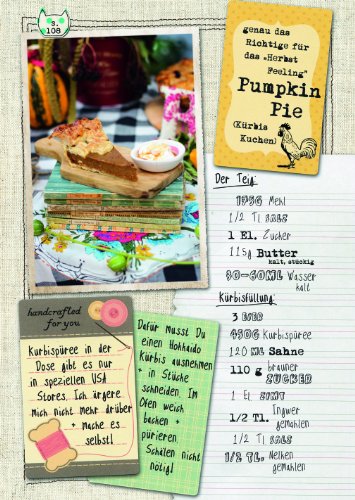 s.
108
genau das
Richtige für
das „Herbst
Feeling"
Pumpkin
Pie
(Kürbis
Kuchen)
Der Teig:
175G Mehl
1/2 Tl SALZ
1 El. Zucker
115g Butter
kalt, stückig
30-60ML Wasser
kalt
Kürbisfüllung:
3 EIER
450G Kürbispüree
120 ML Sahne
110 g brauner
ZUCKER
1 El ZIMT
1/2 Tl. Ingwer
gemahlen
1/2 Tl SALZ
1/2 TL. Nelken
gemahlen
handcrafted
for you
Kürbispüree in der
Dose gibt es nur
in speziellen USA
Stores. Ich ärgere
mich nicht mehr drüber
+ mache es
selbst!
Dafür musst Du
einen Hokkaido
Kürbis ausnehmen
+ in Stücke
schneiden. Im
Ofen weich
backen +
pürieren.
Schälen nicht
nötig!